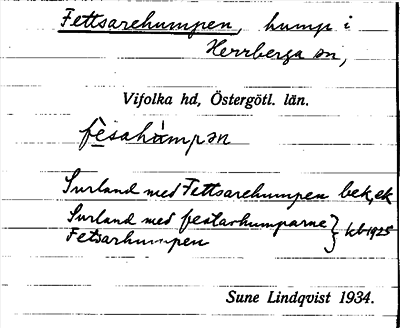 Fettsarehumpen, hump i
Herrberga sn,
Vifolka hd, Östergötl. län.
fèsahàmpən
Surland med Fettsarehumpen bek, ek
Surland med festarhumparne } kb 1925
Fetsarhumpen
Sune Lindqvist 1934.